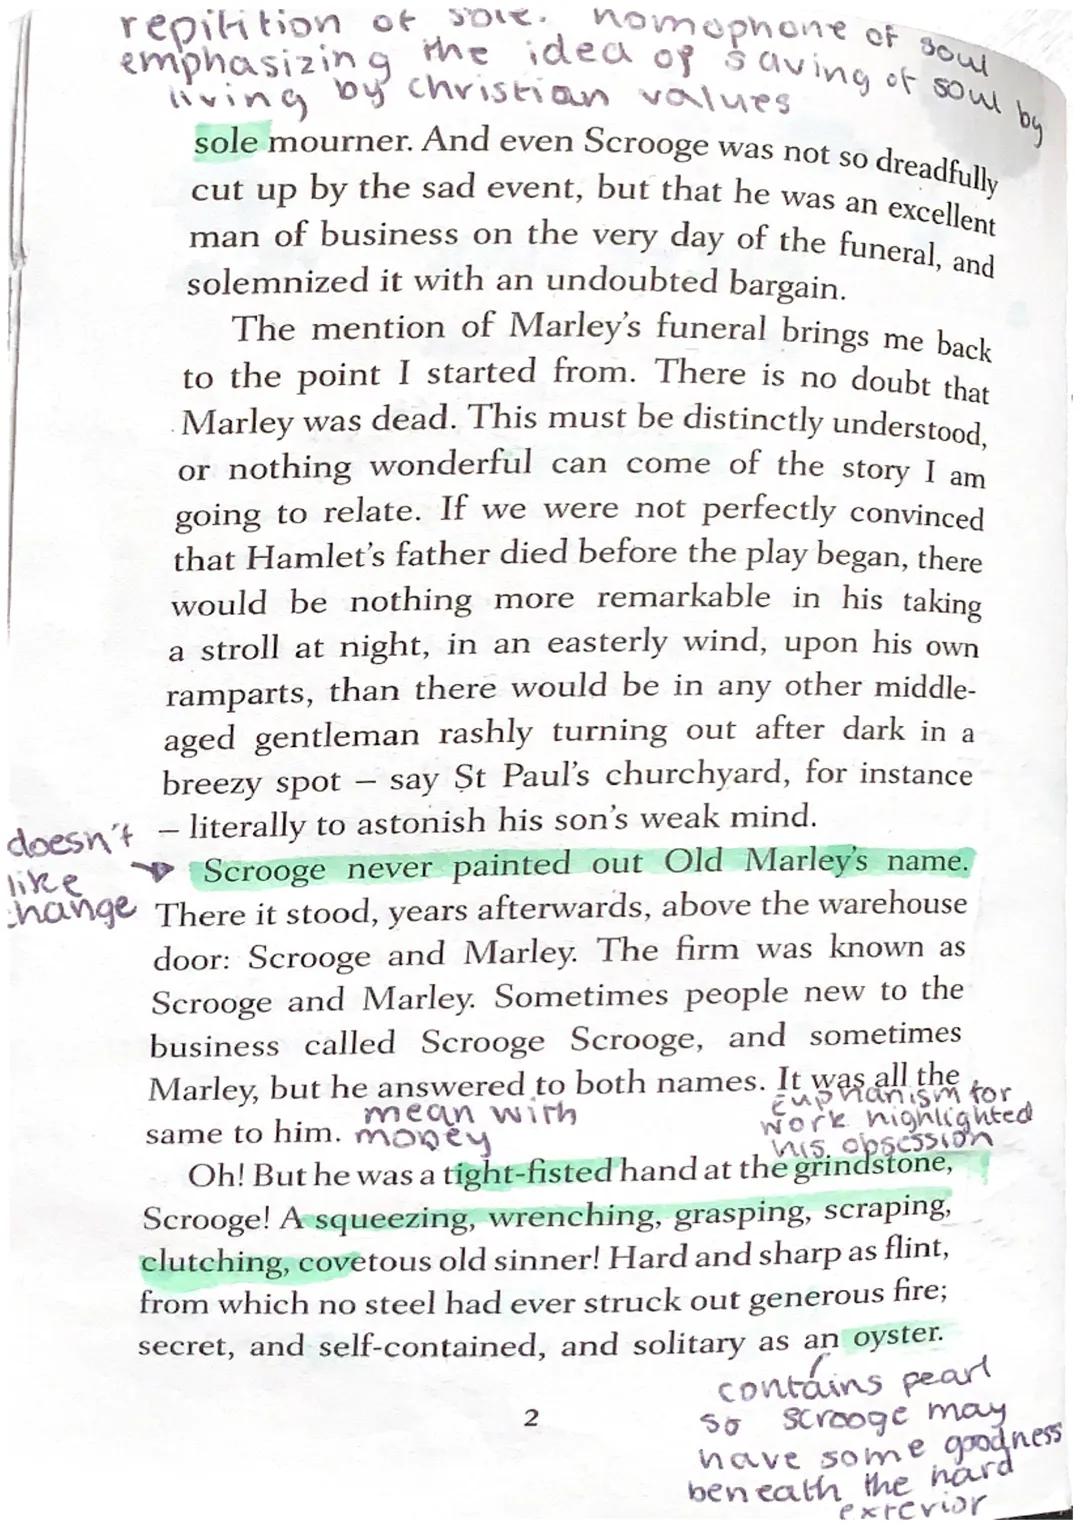 repitition of sole. homophone of soul
emphasizing the idea of saving of soul by
living by christian values
sole mourner. And even Scrooge was not so dreadfully
cut up by the sad event, but that he was an excellent
man of business on the very day of the funeral, and
solemnized it with an undoubted bargain.
The mention of Marley's funeral brings me back
to the point I started from. There is no doubt that
Marley was dead. This must be distinctly understood,
or nothing wonderful can come of the story I am
going to relate. If we were not perfectly convinced
that Hamlet's father died before the play began, there
would be nothing more remarkable in his taking
a stroll at night, in an easterly wind, upon his own
ramparts, than there would be in any other middle-
aged gentleman rashly turning out after dark in a
breezy spot – say St Paul's churchyard, for instance
– literally to astonish his son's weak mind.
doesn't
like
change
Scrooge never painted out Old Marley's name.
There it stood, years afterwards, above the warehouse
door: Scrooge and Marley. The firm was known as
Scrooge and Marley. Sometimes people new to the
business called Scrooge Scrooge, and sometimes
Marley, but he answered to both names. It was all the
same to him.
mean with
money
euphanism for
work highlighted
his obsession
Oh! But he was a tight-fisted hand at the grindstone,
Scrooge! A squeezing, wrenching, grasping, scraping,
clutching, covetous old sinner! Hard and sharp as flint,
from which no steel had ever struck out generous fire;
secret, and self-contained, and solitary as an oyster.
contains pearl
so scrooge may
have some goodness
beneath the hard
exterior
2